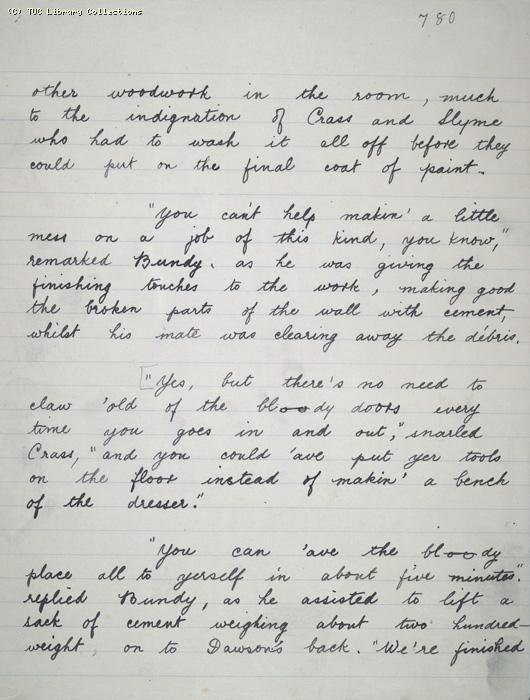 (C) TUC Library Collections
780
other woodwork in the room, much
to the indignation of Crass and Slyme
who had to wash it all off before they
could put on the final coat of paint.
"You can't help makin' a little
mess on a job of this kind, you know,"
remarked Bundy. as he was giving the
finishing touches to the work, making good
the broken parts of the wall with cement,
whilst his mate was clearing away the débris.
["Yes, but there's no need to
claw 'old of the bloody doors every
time you goes in and out," snarled
Crass, "and you could 'ave put yer tools
on the floor instead of makin' a bench
of the dresser."
"You can 'ave the bloody
place all to yerself in about five minutes".
replied Bundy, as he assisted to lift a
sack of cement weighing about two hundred-
weight, on to Dawson's back. "We're finished